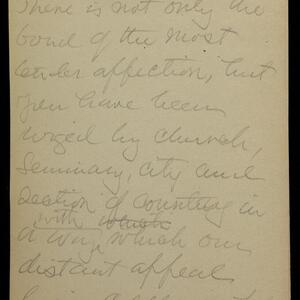 There is not only the
bond of the most
tender affection, but
you have been
urged by church,
Seminary, city and
section of country in
with which
a way, which our
distant appeal